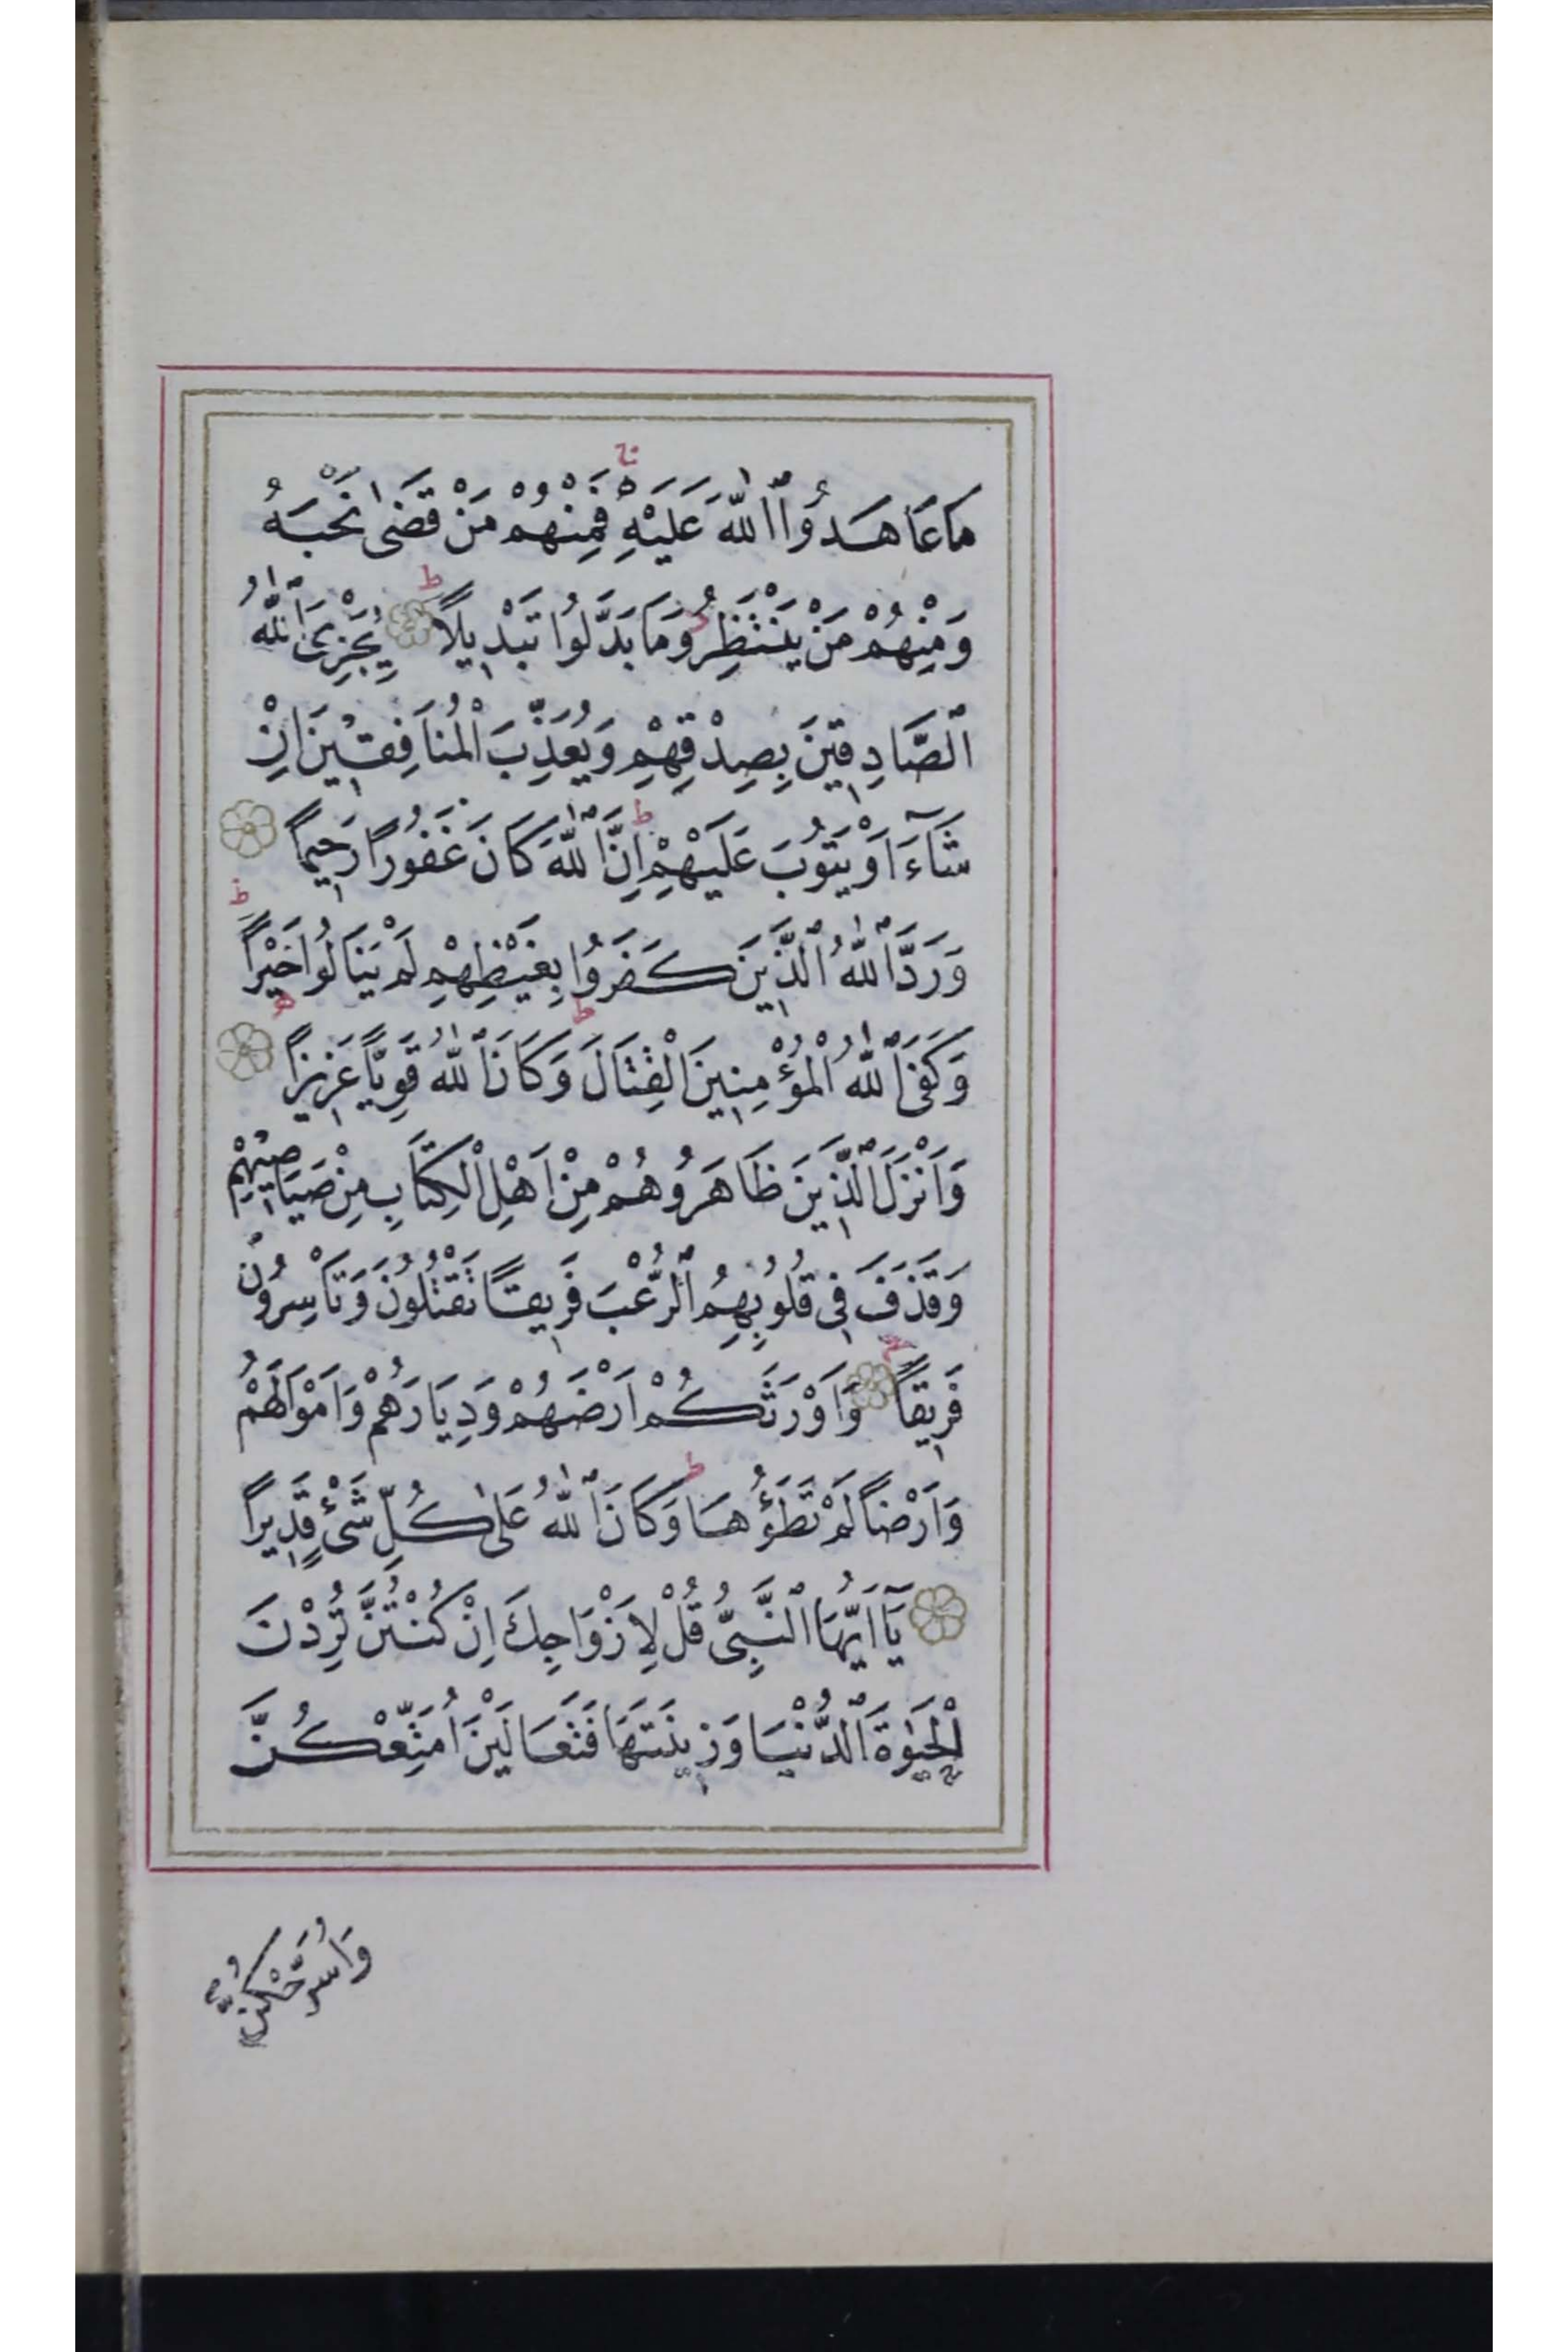 مَا عَاهَدُوا ٱللّٰهَ عَلَيْهِۚ فَمِنْهُمْ مَنْ قَضٰى نَحْبَهُ
وَمِنْهُمْ مَنْ يَنْتَظِرُ وَمَا بَدَّلُوا تَبْدِيلًاۙ لِيَجْزِىَ ٱللّٰهُ
ٱلصَّادِقِينَ بِصِدْقِهِمْ وَيُعَذِّبَ ٱلْمُنَافِقِينَ اِنْ
شَآءَ اَوْ يَتُوبَ عَلَيْهِمْؕ اِنَّ ٱللّٰهَ كَانَ غَفُورًا رَحِيمًا
وَرَدَّ ٱللّٰهُ ٱلَّذِينَ كَفَرُوا بِغَيْظِهِمْ لَمْ يَنَالُوا خَيْرًاؕ
وَكَفَى ٱللّٰهُ ٱلْمُؤْمِنِينَ ٱلْقِتَالَؕ وَكَانَ ٱللّٰهُ قَوِيًّا عَزِيزًا
وَاَنْزَلَ ٱلَّذِينَ ظَاهَرُوهُمْ مِنْ اَهْلِ ٱلْكِتَابِ مِنْ صَيَاصِيهِمْ
وَقَذَفَ فِى قُلُوبِهِمُ ٱلرُّعْبَ فَرِيقًا تَقْتُلُونَ وَتَأْسِرُونَ
فَرِيقًا وَاَوْرَثَكُمْ اَرْضَهُمْ وَدِيَارَهُمْ وَاَمْوَالَهُمْ
وَاَرْضًا لَمْ تَطَؤُهَاؕ وَكَانَ ٱللّٰهُ عَلٰى كُلِّ شَىْءٍ قَدِيرًا
يَآ اَيُّهَا ٱلنَّبِىُّ قُلْ لِاَزْوَاجِكَ اِنْ كُنْتُنَّ تُرِدْنَ
ٱلْحَيٰوةَ ٱلدُّنْيَا وَزِينَتَهَا فَتَعَالَيْنَ اُمَتِّعْكُنَّ
وَاُسَرِّحْكُنَّ